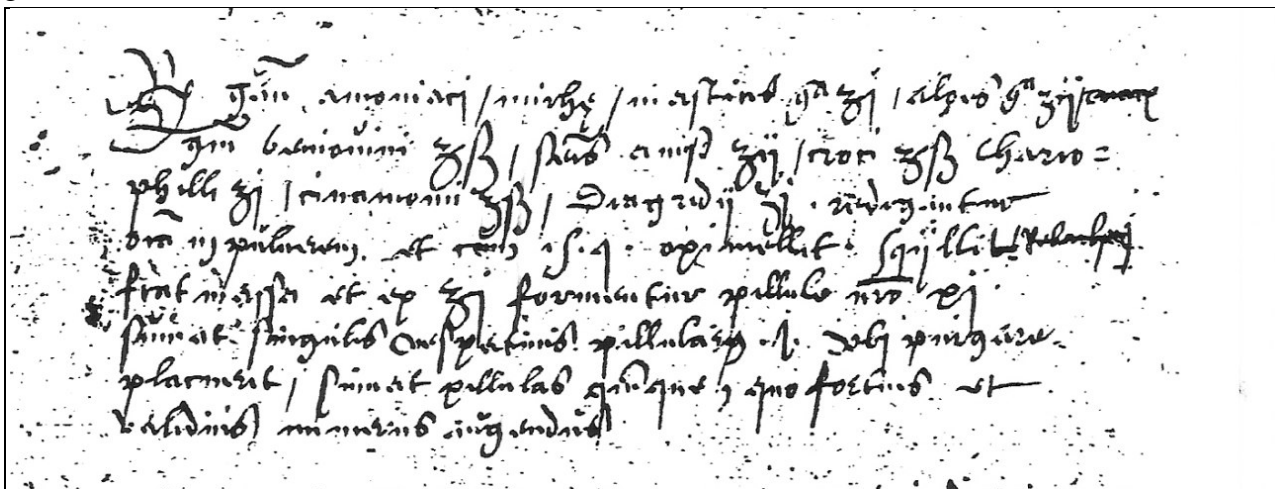 ℞ gum̄ amoniaci / mirhę / masticis gᵃ ʒj / aloes gᵃ ʒij
gm beniowini ʒß / sem̄s anisi ʒij / croci ʒß Chario=
philli ʒj / cinamomi ʒß / Diagridij ʒj . redigantur
oīa in puluerem et cum .s.q. oximellit. sqÿllit.
fiat massa et ex ʒj formentur pillule nr̄o xj
sumat singulis vespertinis pillulam .j. vbi purgare
placuerit / sumat pillulas quinque, quo fortius et
validius numerus augendus